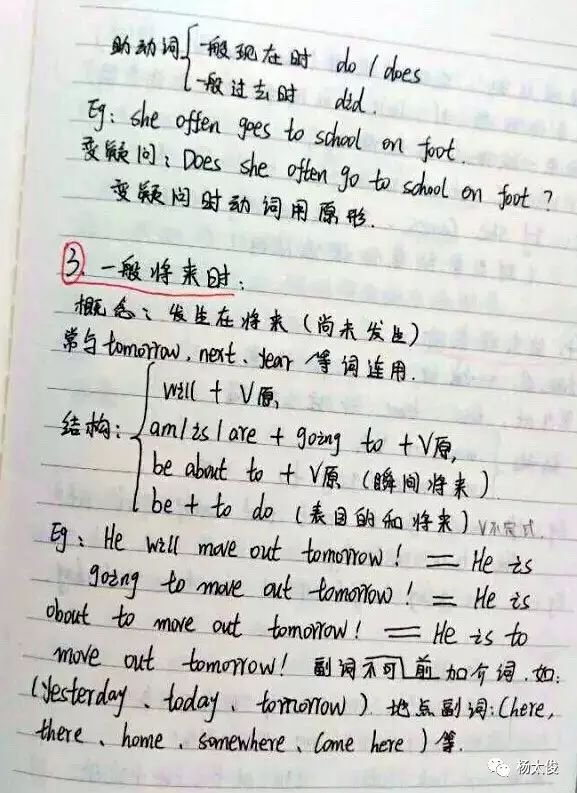 助动词{一般现在时 do / does
一般过去时 did.
Eg: she offen goes to school on foot.
变疑问: Does she often go to school on foot?
变疑问时动词用原形.
3. 一般将来时:
概念: 发生在将来 (尚未发生)
常与tomorrow、next、year 等词连用.
结构:{will + V原,
am / is / are + going to + V原,
be about to + V原 (瞬间将来)
be + to do (表目的和将来) V不定式
Eg: He will move out tomorrow! = He is
going to move out tomorrow! = He is
obout to move out tomorrow! = He is to
move out tomorrow! 副词不可前加介词. 如:
(yesterday、today、tomorrow) 地点副词: (here,
there、home、somewhere、Come here) 等.
杨太俊